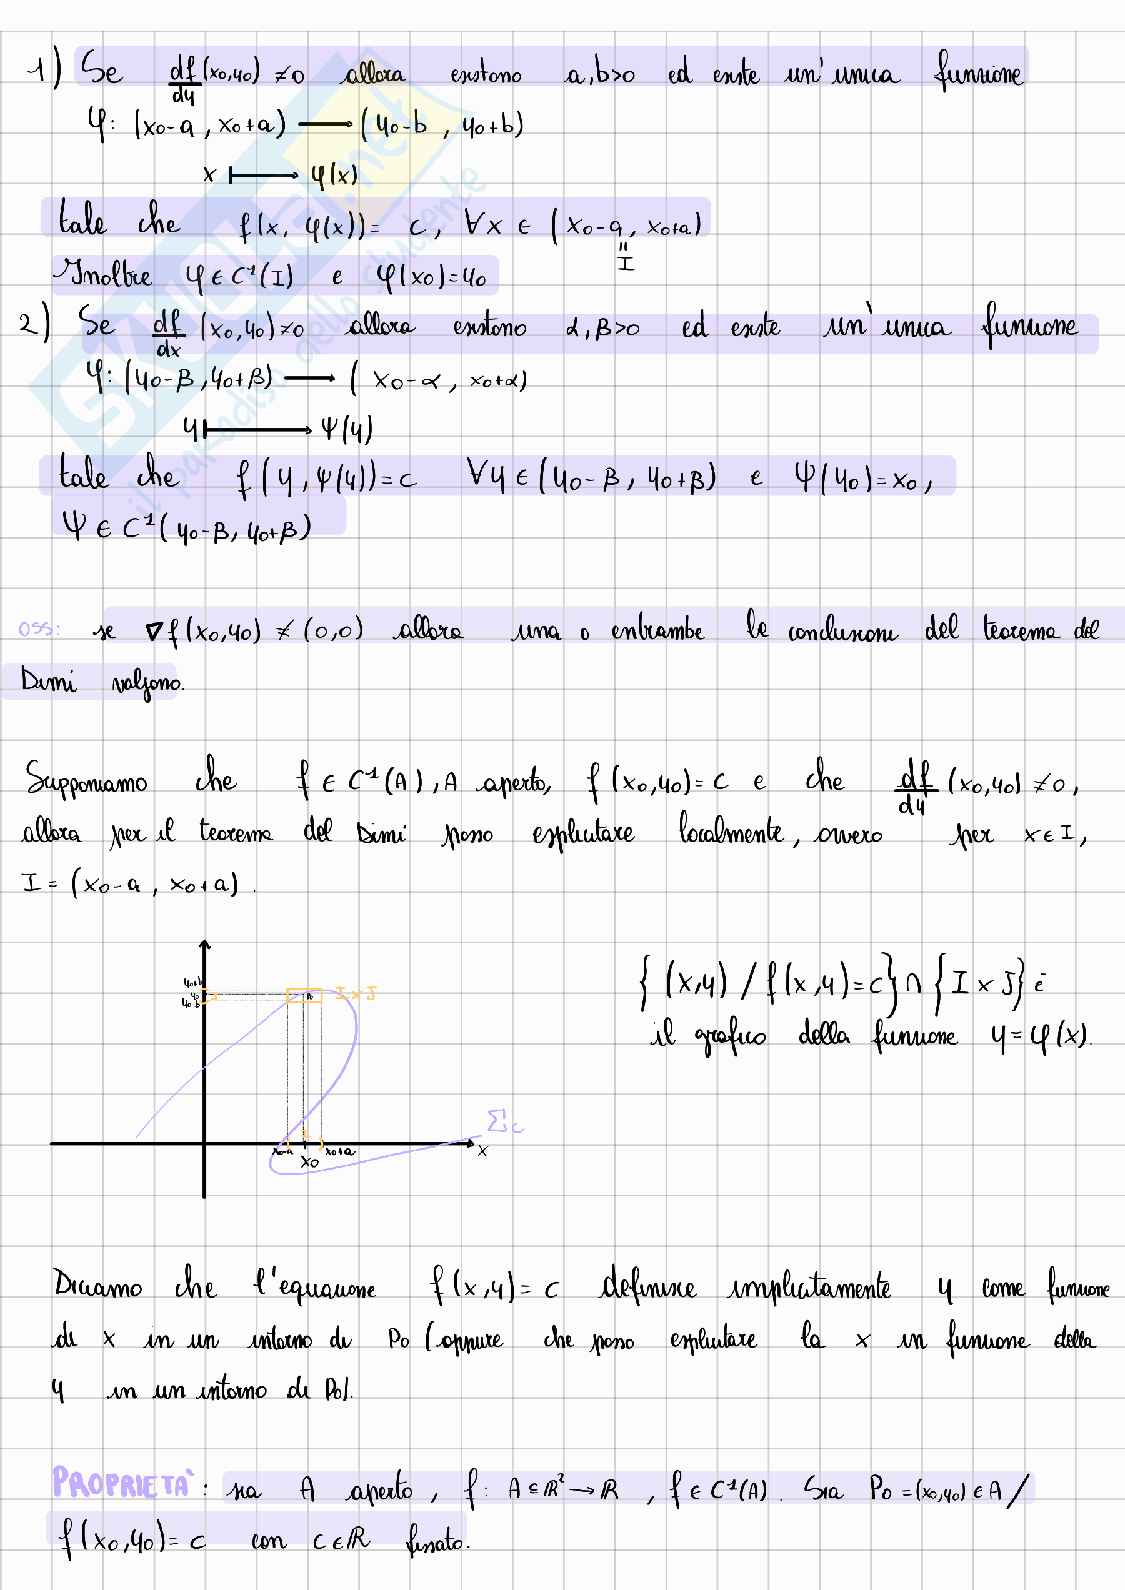 1) Se df/dy (x0,y0) ≠0 allora esistono a,b>0 ed esiste un' unica funzione
φ: (x0-a , x0+a) ⟶ (y0-b , y0+b)
x ⟼ φ(x)
tale che f(x, φ(x)) = c, ∀x ∈ (x0-a, x0+a)
= I
Inoltre φ ∈ C¹(I) e φ(x0)=y0
2) Se df/dx (x0,y0) ≠0 allora esistono α,β>0 ed esiste un' unica funzione
φ: (y0-β ,y0+β) ⟶ ( x0-α , x0+α)
y ⟼ Ψ(y)
tale che f(y,Ψ(y))=c ∀y ∈ (y0-β , y0+β) e Ψ(y0)=x0 ,
Ψ ∈ C¹(y0-β, y0+β)
OSS: se ∇f(x0,y0) ≠ (0,0) allora una o entrambe le conclusioni del teorema del
Dimi valgono.
Supponiamo che f ∈ C¹(A), A aperto, f(x0,y0)= c e che df/dy (x0,y0) ≠0,
allora per il teorema del Dimi posso esplicitare localmente, ovvero per x∈I,
I = (x0-a , x0+a) .
y0+b
y0
y0-b
I x J
{ (x,y) / f(x,y)=c} ∩ {I x J} è
il grafico della funzione y=φ(x).
Σc
x0-a x0 x0+a x
Diciamo che l'equazione f(x,y)= c definisce implicitamente y come funzione
di x in un intorno di P0 (oppure che posso esplicitare la x in funzione della
y in un intorno di P0).
PROPRIETA': sia A aperto , f: A⊆ℝ²→ℝ , f∈C¹(A) . Sia P0 =(x0,y0) ∈ A /
f(x0,y0)= c con c∈ℝ fissato.
SKUOLA.net
il paradiso dello studente